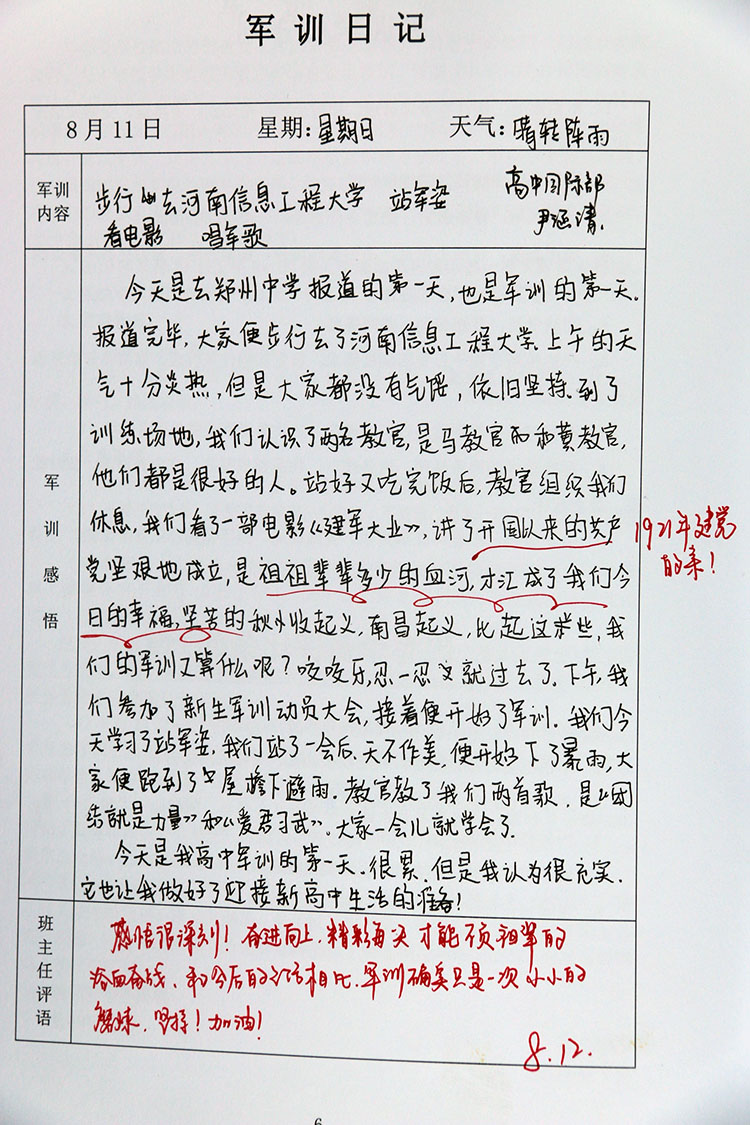 军训日记
8月11日 星期:星期日 天气:晴转阵雨
军训内容
步行去河南信息工程大学 站军姿
看电影 唱军歌
高中国际部
尹涵清
军训感悟
今天是去郑州中学报道的第一天,也是军训的第一天。
报道完毕,大家便步行去了河南信息工程大学.上午的天
气十分炎热,但是大家都没有气馁,依旧坚持.到了
训练场地,我们认识了两名教官,是马教官和黄教官,
他们都是很好的人。站好又吃完饭后,教官组织我们
休息,我们看了一部电影《建军大业》,讲了开国以来的共产
党坚艰地成立,是祖祖辈辈多少的血河,才汇成了我们今
日的幸福,坚苦的秋收起义,南昌起义,比起这些,我
们的军训又算什么呢?咬咬牙,忍一忍又就过去了.下午,我
们参加了新生军训动员大会,接着便开始了军训.我们今
天学习了站军姿,我们站了一会后.天不作美,便开始下了暴雨,大
家便跑到了屋檐下避雨.教官教了我们两首歌.是《团
结就是力量》和《爱军习武》.大家一会儿就学会了.
今天是我高中军训的第一天.很累.但是我认为很充实.
它也让我做好了迎接新高中生活的准备!
1921年建党
的亲!
班主任评语
感悟很深刻!奋进向上.精彩每天才能不负祖辈的
浴血奋战.和今后的生活相比.军训确实只是一次小小的
磨炼.坚持!加油!
8.12.
6